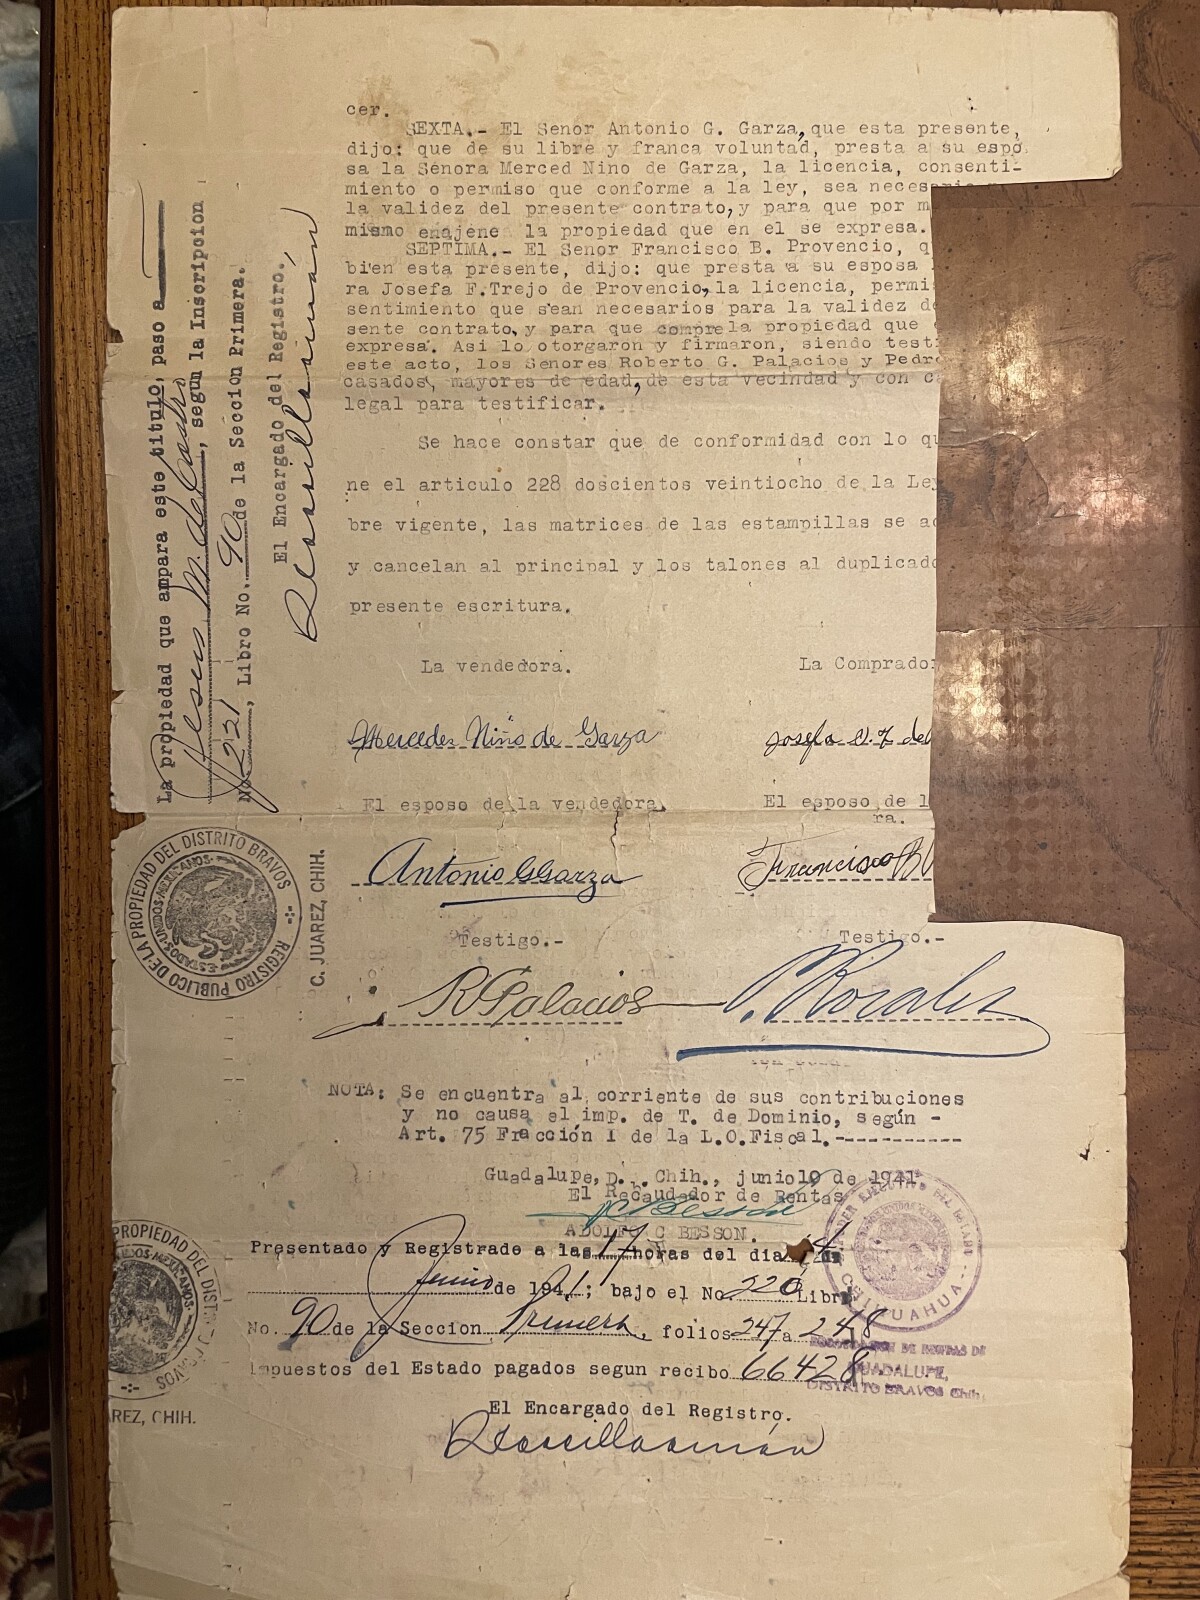 cer.
SEXTA.- El Senor Antonio G. Garza, que esta presente,
dijo: que de su libre y franca voluntad, presta a su espo
sa la Senora Merced Nino de Garza, la licencia, consenti-
miento o permiso que conforme a la ley, sea neces
la validez del presente contrato, y para que por m
mismo enajene la propiedad que en el se expresa.
SEPTIMA.- El Senor Francisco B. Provencio, q
bien esta presente, dijo: que presta a su esposa
ra Josefa F.Trejo de Provencio, la licencia, permi
sentimiento que sean necesarios para la validez d
sente contrato, y para que compre la propiedad que
expresa. Asi lo otorgaron y firmaron, siendo testi
este acto, los Senores Roberto G. Palacios y Pedr
casados, mayores de edad, de esta vecindad y con c
legal para testificar.
Se hace constar que de conformidad con lo qu
ne el articulo 228 doscientos veintiocho de la Ley
bre vigente, las matrices de las estampillas se a
y cancelan al principal y los talones al duplicado
presente escritura.
La vendedora.
La Comprado
Mercedes Niño de Garza
Josefa
El esposo de la vendedora.
El esposo de l
ra.
Antonio G Garza
Francisco B
Testigo.-
Testigo.-
R G Palacios
P. Morales
NOTA: Se encuentra al corriente de sus contribuciones
y no causa el imp. de T. de Dominio, según -
Art. 75 Fracción I de la L.O.Fiscal.-----------
Guadalupe, D. Chih., junio 10 de 1941
El Recaudador de Rentas
ADOLFO C BESSON.
Presentado y Registrado a las 17 horas del dia 14 de
Junio de 1941; bajo el No. 220 Libro
No. 90 de la Seccion Primera, folios 247 a 248
Impuestos del Estado pagados segun recibo 66428
El Encargado del Registro.
La propiedad que ampara este titulo, paso a
Jesus M. de Castro, segun la Inscripcion
No. 221, Libro No. 90 de la Seccion Primera.
El Encargado del Registro,
REGISTRO PUBLICO DE LA PROPIEDAD DEL DISTRITO BRAVOS
ESTADOS UNIDOS MEXICANOS
C. JUAREZ, CHIH.
PROPIEDAD DEL DIST
BRAVOS
REZ, CHIH.
PODER EJECUTIVO DEL ESTADO
CHIHUAHUA
RECAUDACION DE RENTAS DE
GUADALUPE,
DISTRITO BRAVOS Chih.